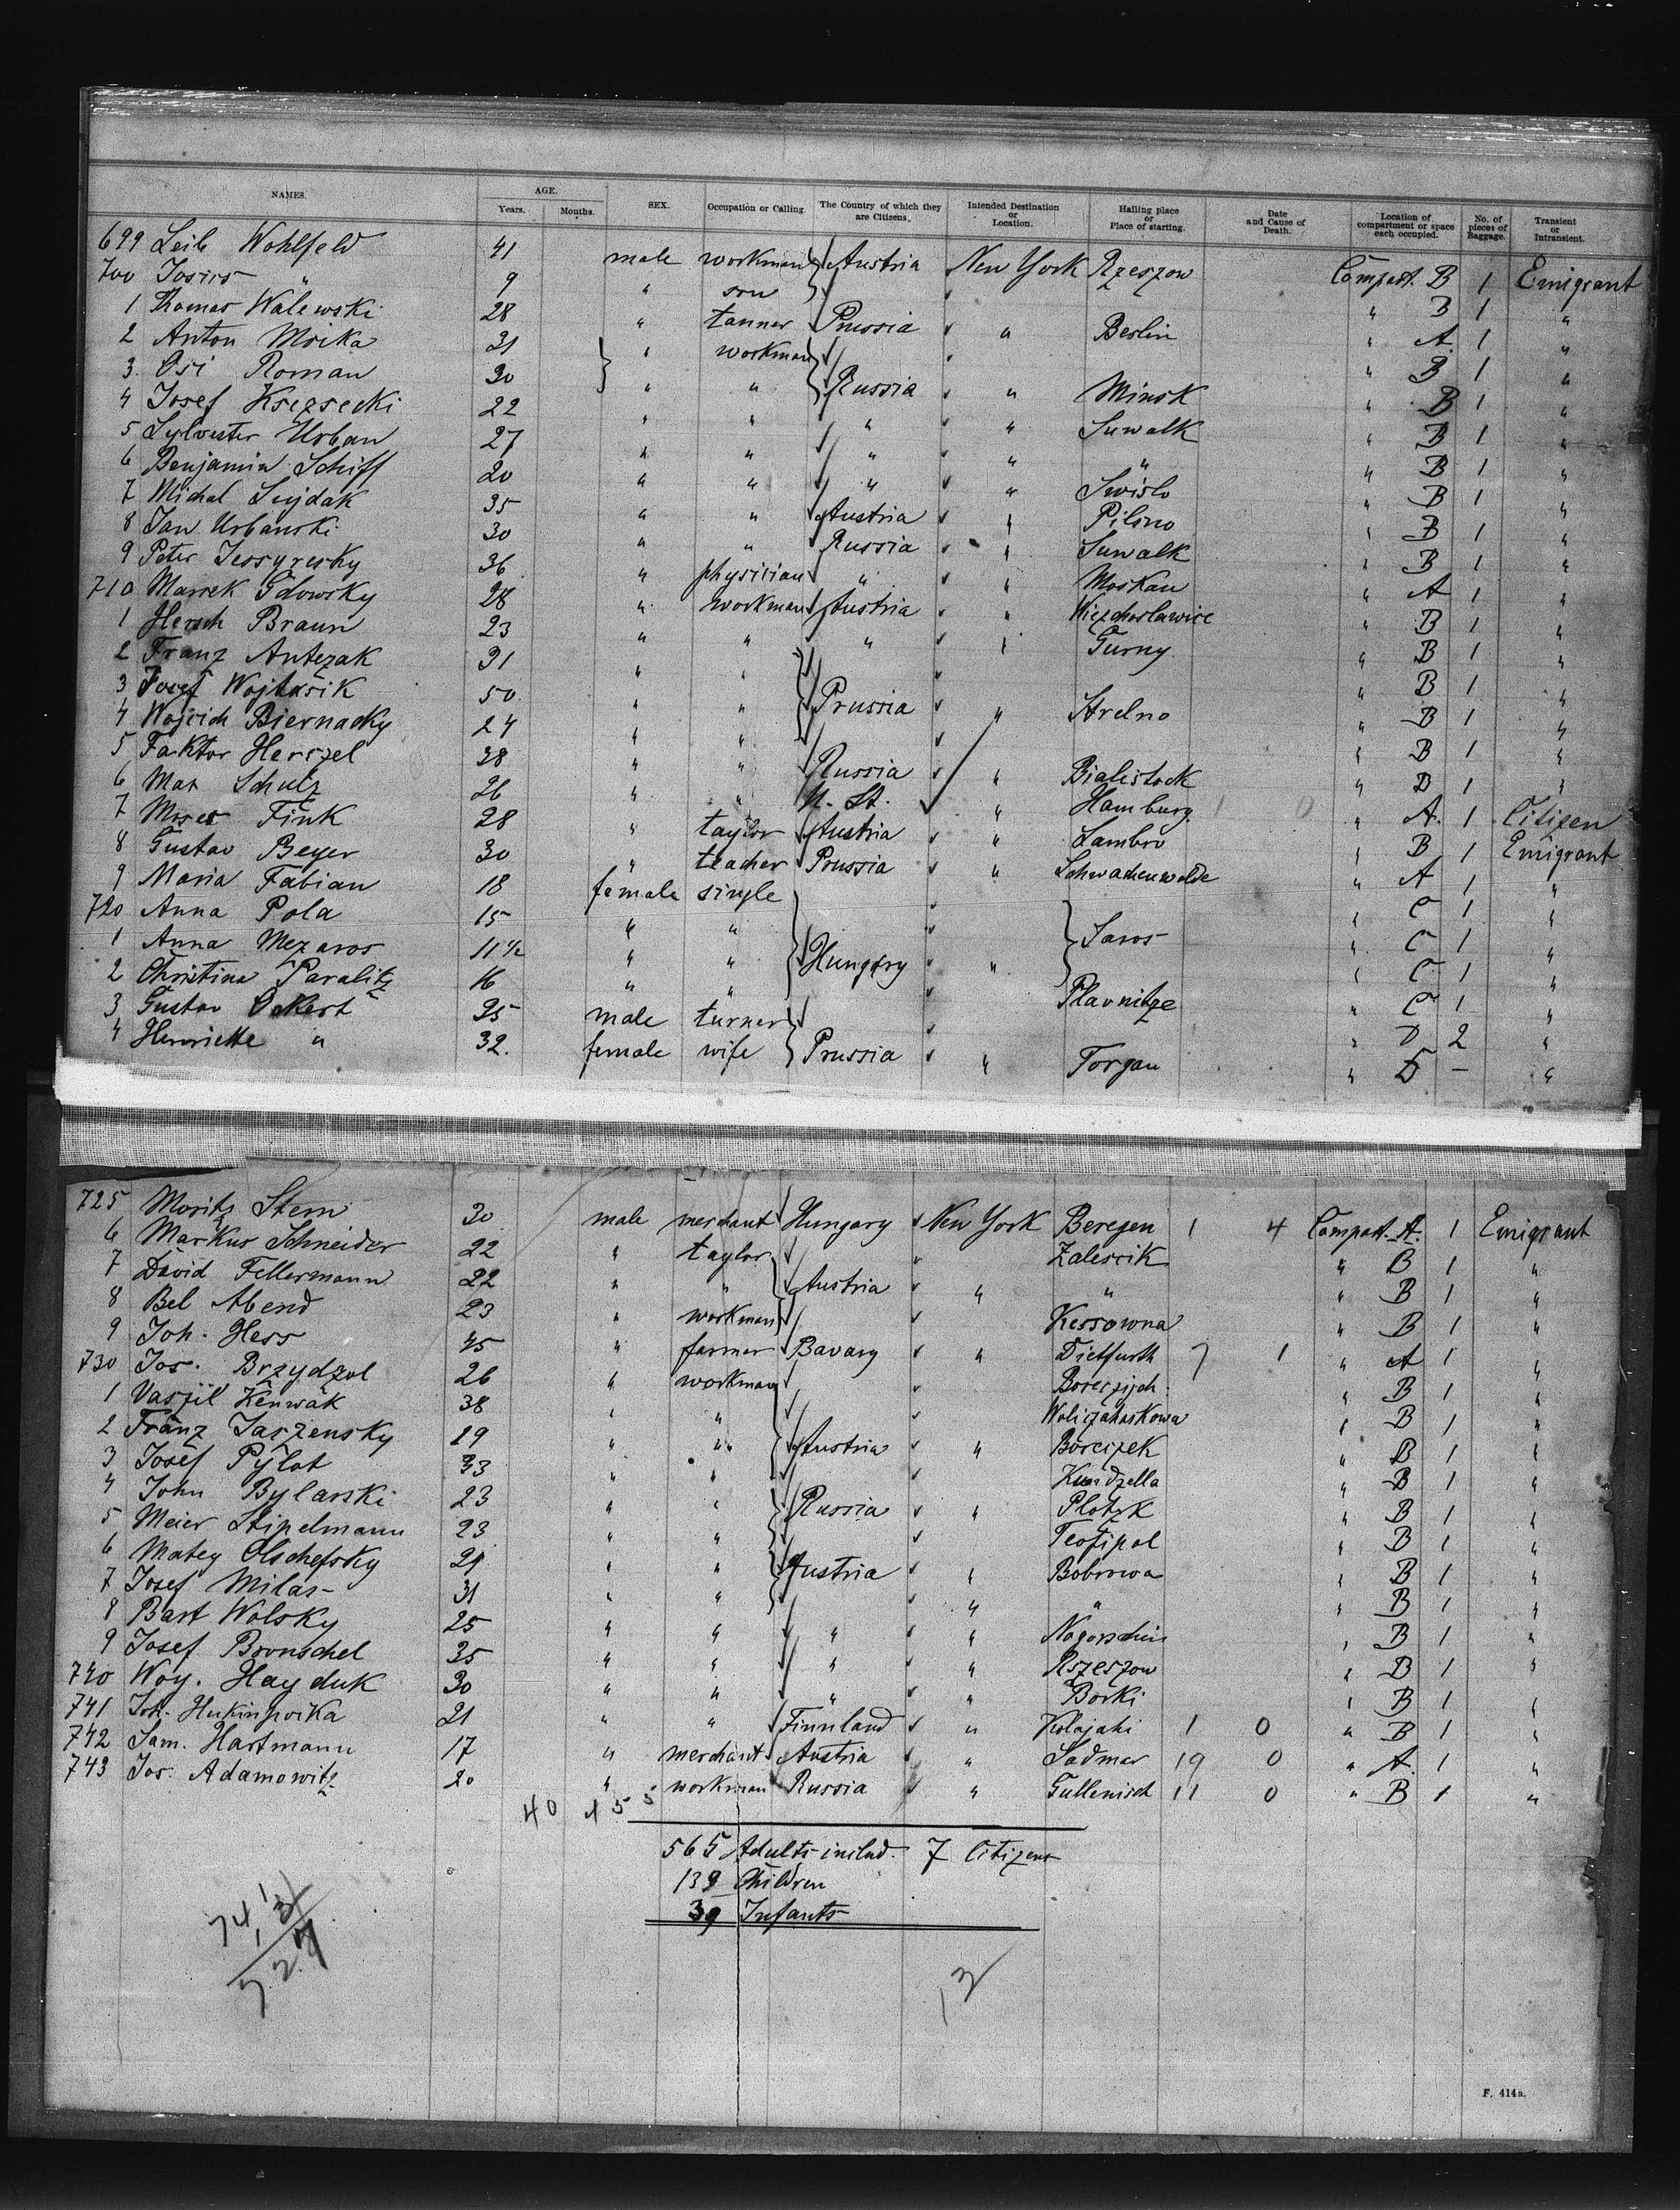 NAMES. AGE. Years. Months. SEX. Occupation or Calling. The Country of which they are Citizens. Intended Destination or Location. Hailing place or Place of starting. Date and Cause of Death. Location of compartment or space each occupied. No. of pieces of Baggage. Transient or Intransient.
699 Leib Wohlfeld 41 male workman Austria New York Rzeszow Compart. B 1 Emigrant
700 " 9 " son " B 1 "
1 Thomas Walewski 28 " tanner Prussia " Berlin " A 1 "
2 Anton Moika 21 " workman " B 1 "
3. Osi Roman 30 " " Russia " Minsk " B 1 "
4 Josef 22 " " " " Suwalk " B 1 "
5 Sylvester Urban 27 " " " " " " B 1 "
6 Benjamin Schiff 20 " " " " Swislo " B 1 "
7 Michal Sujdak 35 " " Austria " Pilzno " B 1 "
8 Jan Urbanski 30 " " Russia " Suwalk " B 1 "
9 Peter 36 " physician " " Moskau " A 1 "
710 Marrek Gdowsky 28 " workman Austria " " B 1 "
1 Hersch Braun 23 " " " " Gurny " B 1 "
2 Franz Antezak 31 " " " B 1 "
3 Josef Wojtasik 50 " " Prussia " Strelno " B 1 "
4 Wojcich Biernacky 24 " " " B 1 "
5 Faktor Herszel 38 " " Russia " Bialistock " B 1 "
6 Max Schulz 26 " " U. St. " Hamburg 1 0 " A. 1 Citizen
7 Moses Fink 28 " taylor Austria " " B 1 Emigrant
8 Gustav Beyer 30 " teacher Prussia " Schwachenwalde " A 1 "
9 Maria Fabian 18 female single " C 1 "
720 Anna Pola 15 " " Saros " C 1 "
1 Anna Mezaros 11 1/2 " " Hungary " " C 1 "
2 Christina Paralitz 16 " " Plavnitze " C 1 "
3 Gustav Eckert 25 male turner " D 2 "
4 Henriette " 32. female wife Prussia " Torgau " D — "
725 Moritz Stern 30 male merchant Hungary New York Beregen 1 4 Compart. A. 1 Emigrant
6 Markus Schneider 22 " taylor Zalescik " B 1 "
7 David Fellermann 22 " " Austria " " " B 1 "
8 Bel Abend 23 " workman Kessowna " B 1 "
9 Joh. Hess 45 " farmer Bavary " Dietfurth 7 1 " A 1 "
730 Jos. Brzydzol 26 " workman " B 1 "
1 Vasjil Kenwak 38 " " " B 1 "
2 Franz Jaszensky 29 " " Austria " " B 1 "
3 Josef Pylot 33 " " " B 1 "
4 John Bylanski 23 " " Russia " Plotzk " B 1 "
5 Meier Stipelmann 23 " " Teofipol " B 1 "
6 Matey Olschefsky 21 " " Austria " Bobrowa " B 1 "
7 Josef Milas 31 " " " " " B 1 "
8 Bart Wolsky 25 " " " " " B 1 "
9 Josef Bronschel 35 " " " " Rszeszow " B 1 "
740 Woy. Hayduk 30 " " " " Borki " B 1 "
741 Joh. 21 " " Finnland " Kalajaki 1 0 " B 1 "
742 Sam. Hartmann 17 " merchant Austria " Sadmar 19 0 " A. 1 "
743 Jos. Adamowitz 20 " workman Russia " Gullenisch 11 0 " B 1 "
40
565 Adults includ. 7 Citizens
139 Children
39 Infants
F. 414a.